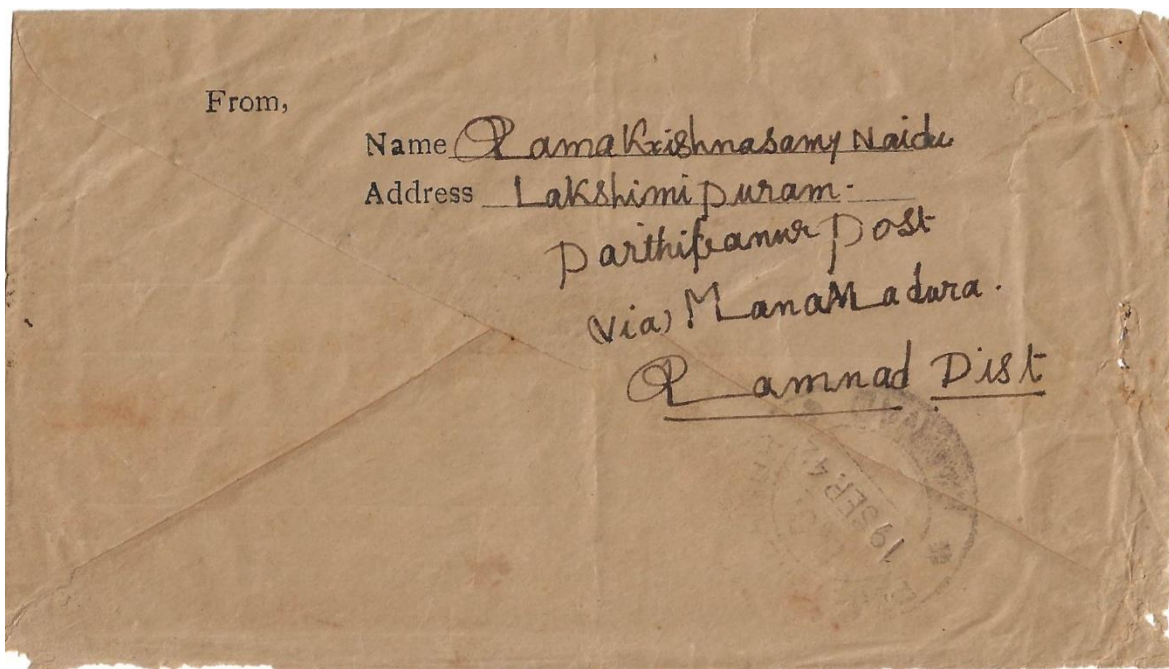 From,
Name Ramakrishnasamy Naidu
Address Lakshimipuram-
Parthibanur Post
(via) ManaMadura.
Ramnad Dist
19 SEP.42